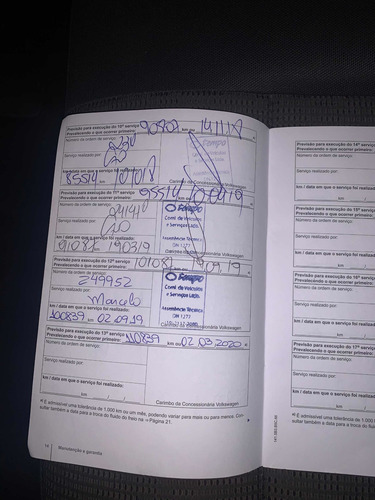 Previsão para execução do 10º serviço
Prevalecendo o que ocorrer primeiro: 90903 km ou 14/11/18
Número da ordem de serviço:
Serviço realizado por:
km / data em que o serviço foi realizado:
85514
Carimbo da Concessionária Volkswagen
Previsão para execução do 11º serviço
Prevalecendo o que ocorrer primeiro: 95514
Número da ordem de serviço:
Serviço realizado por:
km / data em que o serviço foi realizado:
91081 190319
Coml de Veículos
e Serviços Ltda.
Assistência Técnica
DN 1277
Carimbo da Concessionária Volkswagen
Previsão para execução do 12º serviço
Prevalecendo o que ocorrer primeiro: 101081 19.09.19
Número da ordem de serviço:
249952
Serviço realizado por:
Marcelo
km / data em que o serviço foi realizado:
100839 km 02.09.19
Coml de Veículos
e Serviços Ltda.
Assistência Técnica
DN 1277
Carimbo da Concessionária Volkswagen
Previsão para execução do 13º serviço
Prevalecendo o que ocorrer primeiro: 110839 km ou 02.03.2020
Número da ordem de serviço:
Serviço realizado por:
km / data em que o serviço foi realizado:
km / /
Carimbo da Concessionária Volkswagen
a) É admissível uma tolerância de 1.000 km ou um mês, podendo variar para mais ou para menos. Con-
sultar também a data para a troca do fluido do freio na → Página 21.
14 Manutenção e garantia
Previsão para execução do 14º serviço
Prevalecendo o que ocorrer primeiro:
Número da ordem de serviço:
Serviço realizado por:
km / data em que o serviço foi
Previsão para execução do 15º serviço
Prevalecendo o que ocorrer primeiro:
Número da ordem de serviço:
Serviço realizado por:
km / data em que o serviço foi
Previsão para execução do 16º serviço
Prevalecendo o que ocorrer primeiro:
Número da ordem de serviço:
Serviço realizado por:
km / data em que o serviço foi
Previsão para execução do 17º serviço
Prevalecendo o que ocorrer primeiro:
Número da ordem de serviço:
Serviço realizado por:
km / data em que o serviço foi
a) É admissível uma tolerância de 1.000
sultar também a data para a troca do flu